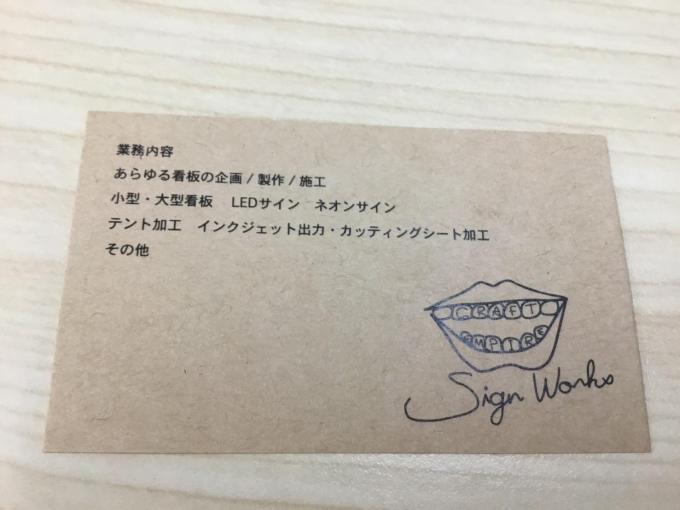 業務内容
あらゆる看板の企画/製作/施工
小型・大型看板　LEDサイン　ネオンサイン
テント加工　インクジェット出力・カッティングシート加工
その他
CRAFT
EMPIRE
Sign Works